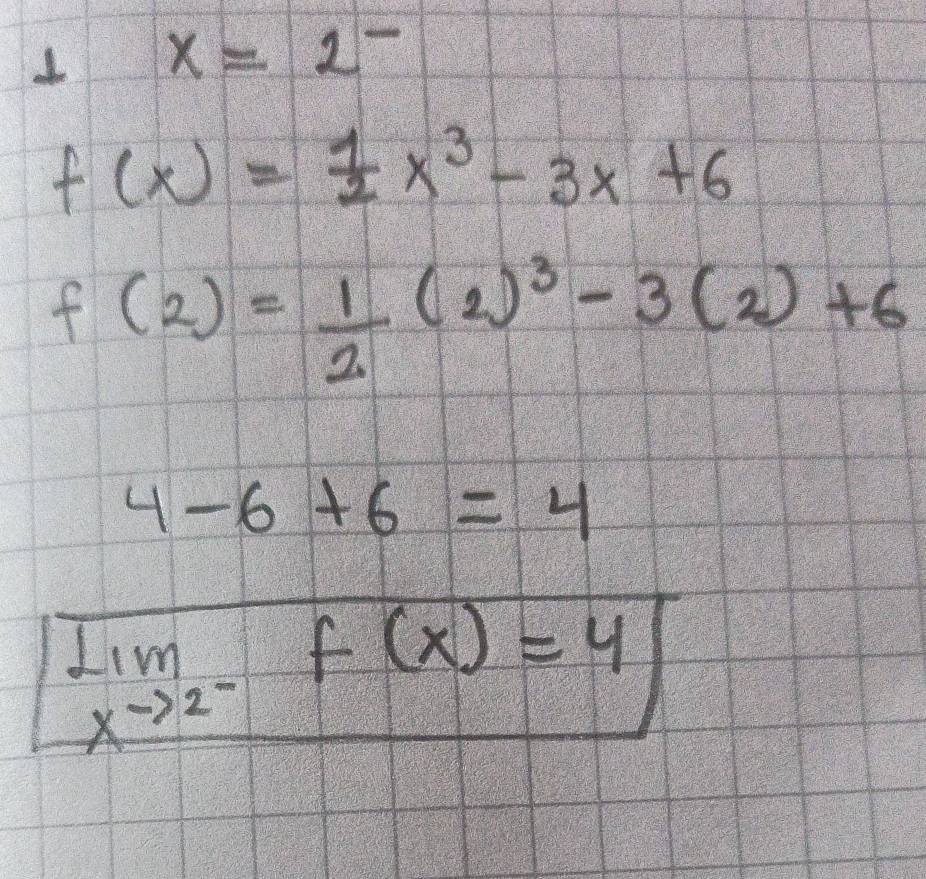 1 x = 2⁻
f(x) = 1/2 x³ - 3x + 6
f(2) = 1/2 (2)³ - 3(2) + 6
4 - 6 + 6 = 4
Lim f(x) = 4
x→2⁻